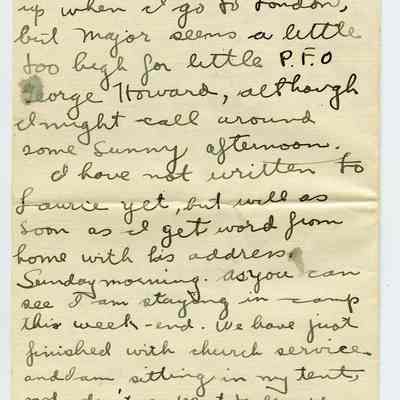 up when I go to London,
but Major seems a little
too high for little P.F.O
George Howard, although
I might call around
some sunny afternoon.
I have not written to
Laurie yet, but will as
soon as I get word from
home with his address.
Sunday morning. As you can
see I am staying in camp
this week-end. We have just
finished with church service
and I am, sitting in my tent,